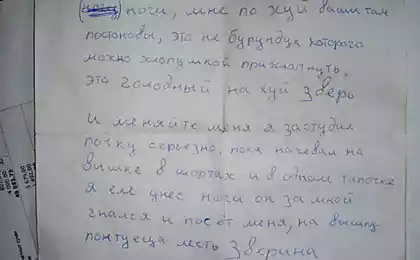 ноги, мне по хуй ваши там
постановы, это не бурундук которого
можно хлопушкой прихлопнуть.
это голодный на хуй зверь
И меняйте меня я застудил
почку серьезно, пока ночевал на
вышке в шортах и в одном тапочке
я еле унес ноги он за мной
гнался и пас от меня, на вышку
понту еще лесть зверина